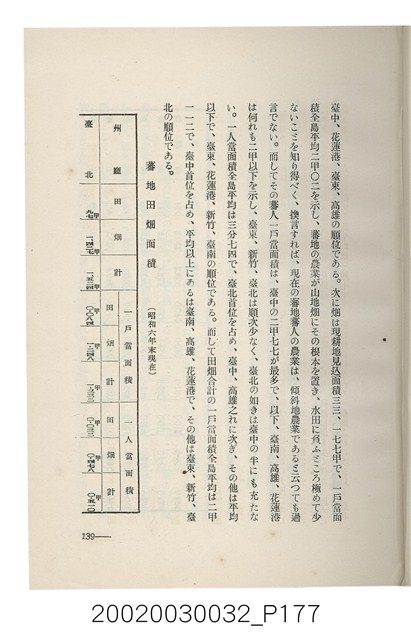 臺中、花蓮港、臺東、高雄の順位である。次に畑は現耕地見込面積三三、一七七甲で、一戸當面
積全島平均二甲〇二を示し、蕃地の農業が山地畑にその根本を置き、水田に負ふところ極めて少
ないことを知り得べく、換言すれば、現在の蕃地蕃人の農業は、傾斜地農業であると云つても過
言でない。而してその蕃人一戸當面積は、臺中の二甲七七が最多で、以下、臺南、高雄、花蓮港
は何れも二甲以下を示し、臺東、新竹、臺北は順次少なく、臺北の如きは臺中の半にも充たな
い。一人當面積全島平均は三分七四で、臺北首位を占め、臺中、高雄之れに次ぎ、その他は平均
以下で、臺東、花蓮港、新竹、臺南の順位である。而して田畑合計の一戸當面積全島平均は二甲
一一二で、臺中首位を占め、平均以上にあるは臺南、高雄、花蓮港で、その他は臺東、新竹、臺
北の順位である。
蕃地田畑面積
(昭和六年末現在)
州廳 田 畑 計 一戸當面積 田 畑 計 一人當面積 田 畑 計
臺北
139
20020030032_P177